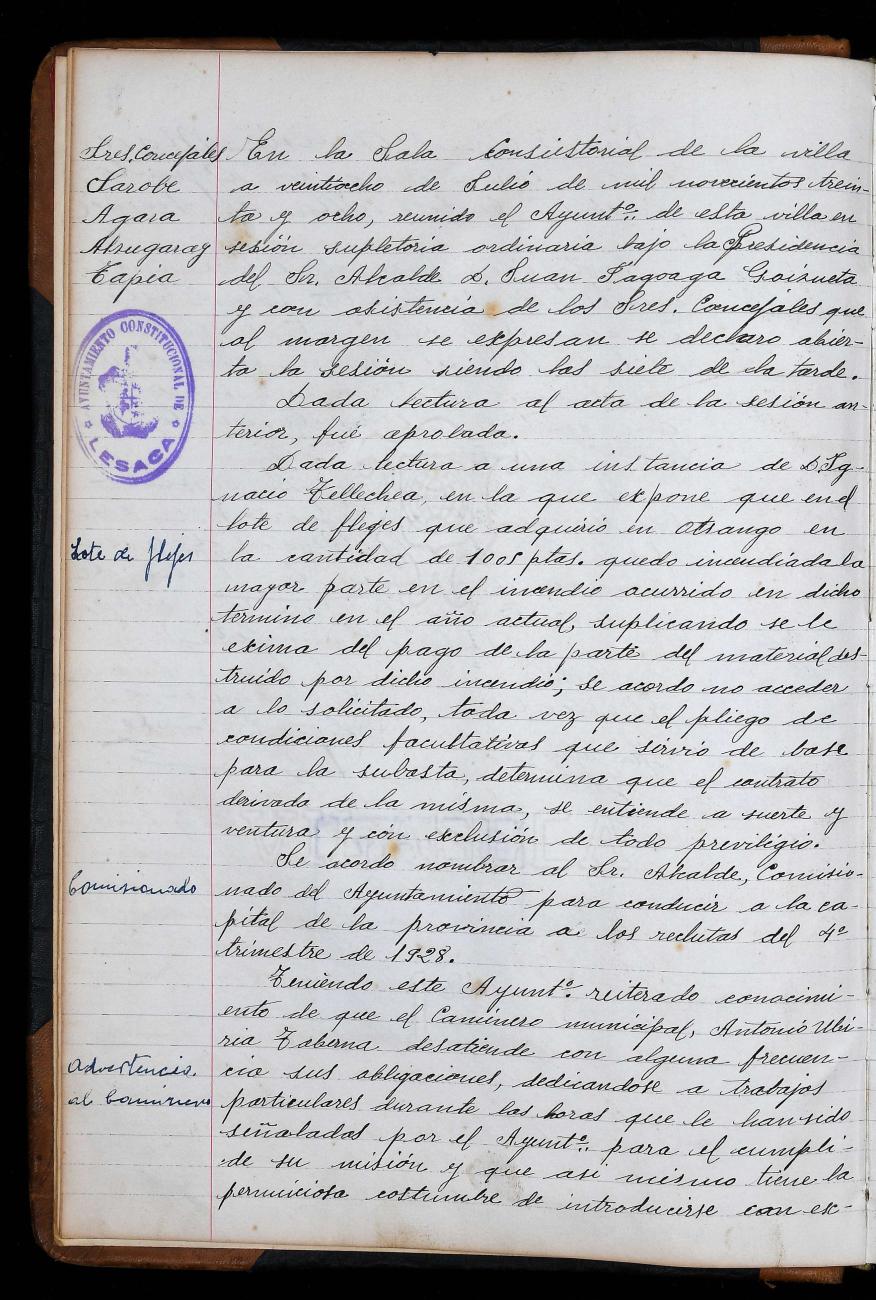 Sres. Concejales
Sarobe
Agara
Alzugaray
Tapia
AYUNTAMIENTO CONSTITUCIONAL DE
LESACA
Lote de flejes
Comisionado
Advertencia
al Caminero
En la Sala Consistorial de la villa
a veintiocho de Julio de mil novecientos trein-
ta y ocho, reunido el Ayuntº. de esta villa en
sesión supletoria ordinaria bajo la Presidencia
del Sr. Alcalde D. Juan Tagoaga Goizueta
y con asistencia de los Sres. Concejales que
al margen se expresan se declaro abier-
ta la sesión siendo las siete de la tarde.
Dada lectura al acta de la sesión an-
terior, fué aprobada.
Dada lectura a una instancia de D. Ig-
nacio Tellechea, en la que expone que en el
lote de flejes que adquirió en Otsango en
la cantidad de 1005 ptas. quedo incendiada la
mayor parte en el incendio acurrido en dicho
termino en el año actual, suplicando se le
exima del pago de la parte del material des-
truido por dicho incendio; se acordo no acceder
a lo solicitado, toda vez que el pliego de
condiciones facultativas que sirvio de base
para la subasta, determina que el contrato
derivado de la misma, se entiende a suerte y
ventura y con exclusión de todo previligio.
Se acordo nombrar al Sr. Alcalde, Comisio-
nado del Ayuntamiento para conducir a la ca-
pital de la provincia a los reclutas del 4º
trimestre de 1928.
Teniendo este Ayuntº. reiterado conocimi-
ento de que el Caminero municipal, Antonio Ubi-
ria Taberna desatiende con alguna frecuen-
cia sus obligaciones, dedicandose a trabajos
particulares durante las horas que le han sido
señaladas por el Ayuntº. para el cumpli-
de su misión y que asi mismo tiene la
perniciosa costumbre de introducirse con ex-